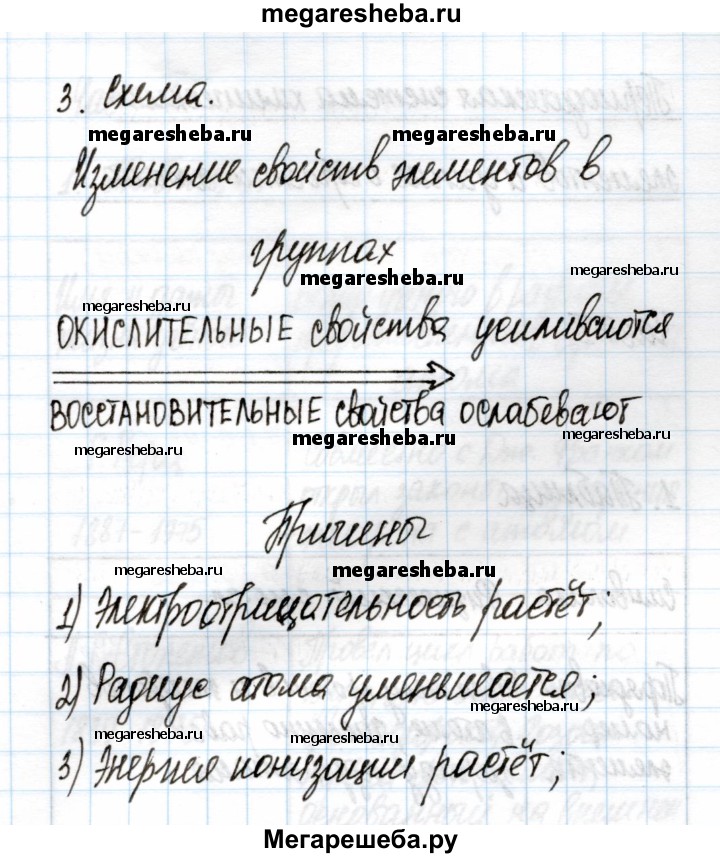 megaresheba.ru
3. Схема.
megaresheba.ru megaresheba.ru
Изменение свойств элементов в
группах
megaresheba.ru megaresheba.ru
megaresheba.ru
ОКИСЛИТЕЛЬНЫЕ свойства усиливаются
ВОССТАНОВИТЕЛЬНЫЕ свойства ослабевают
megaresheba.ru megaresheba.ru
megaresheba.ru
Причины
megaresheba.ru megaresheba.ru
1) Электроотрицательность растёт;
2) Радиус атома уменьшается;
megaresheba.ru megaresheba.ru
3) Энергия ионизации растёт;
Мегарешеба.ру